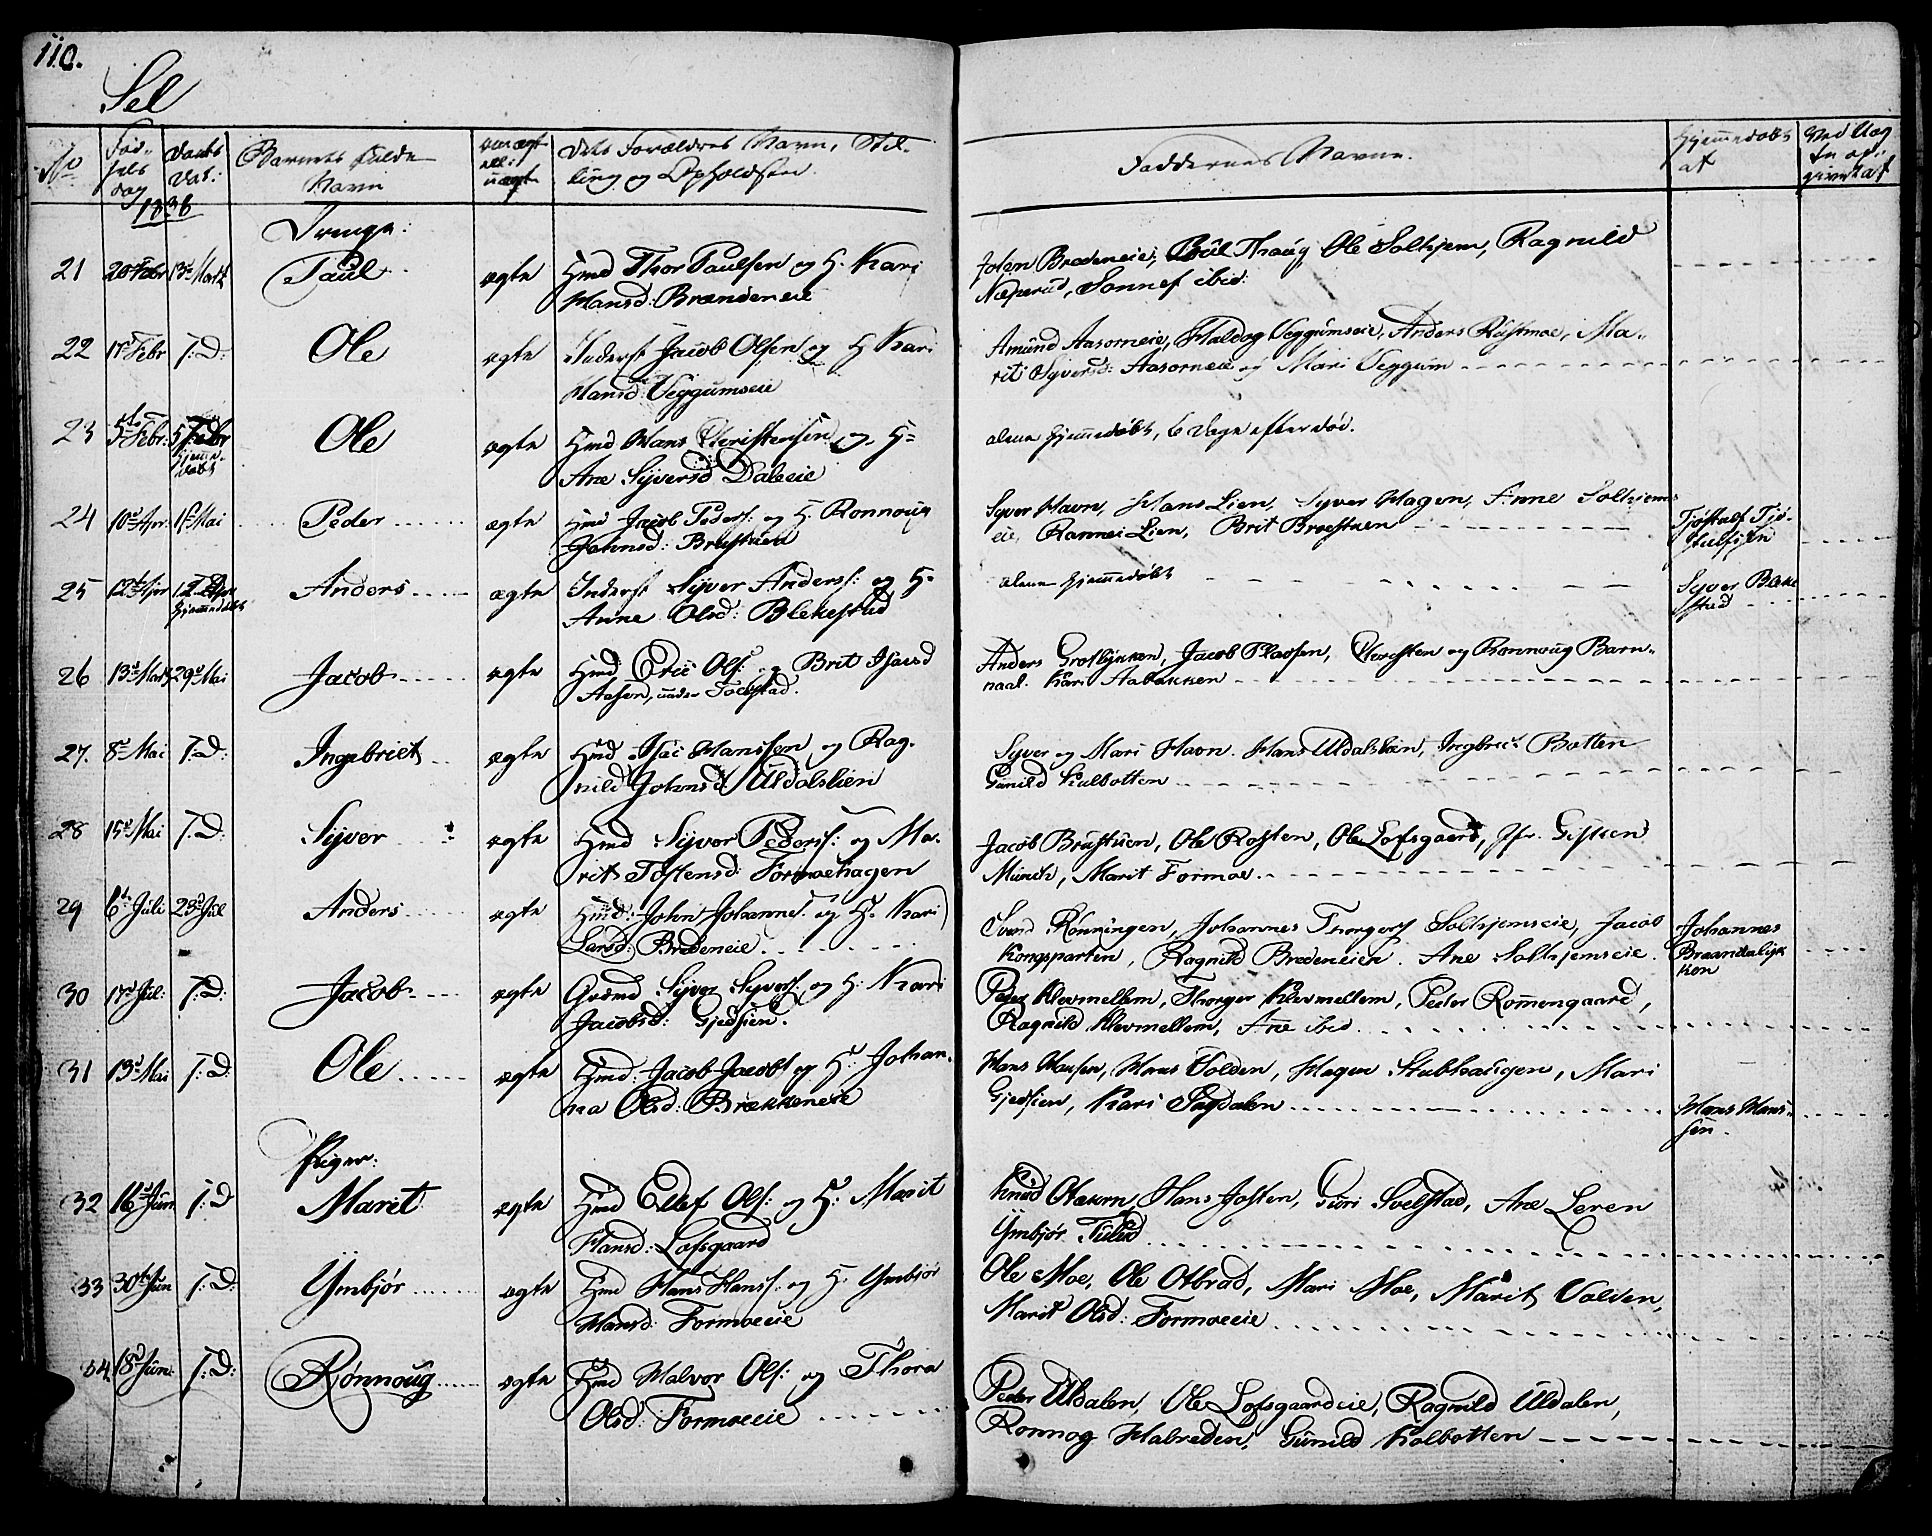 110.
Sel
No
Fød-
sels
dag
Daabs
Dat:
Barnets fulde
Navn
om ægt
ell:
uægte
Dets Forældres Navn, Stil-
ling og Opholdsted.
Faddernes Navne.
Hjemmedøbt
af
1838
Drenge:
21 20 Febr 13d Marts Paul ægte Hmd Thor Paulsen og H. Kari
Hansd: Brændeneie
Joen Bredeneie, Thoug, Ole Solhjem, Ragnild
Næperud, Sonnef ibid:
22 17 Febr T:D: Ole ægte Inderst Jacob Olsen og H Kari
Hansd: Veggumseie
Amund Aasorneie, Haldog Veggumseie, Anders Rustmoe, Ma-
rit Syversd: Aasorneie og Mari Veggum
23 5te Febr: 5 Febr Hjemme-
døbt Ole ægte Hmd Hans Christensen og H-
Ane Syversd Daleeie
alene Hjemmedøbt, 6 Dage efter død.
24 10d Apr. 1st Mai Peder ægte Hmd Jacob Peders: og H. Ronnoug
Johnsd: Brustuen
Syver Havn, Hans Lien, Syver Hagen, Anne Solhiems
eie, Rannei Lien, Brit Broestuen
Tjøstulf Tjø-
stulfsen
25 12t Apr 12 Apr
Hjemmedøbt Anders ægte Inderst Syver Anders: og H-
Anne Olsd: Blekestad
alene Hjemmedøbt
Syver Bække
stad
26 13d Marts 29d Mai Jacob ægte Hmd Eric Ols: og Brit Isacsd
Aasen, under Tolfstad.
Anders Grotlykken, Jacob Pladsen, Christen og Ronnoug Barn-
naal. Kari Aabakken
27. 8d Mai T:D: Ingebriet ægte Hmd Isac Hanssen og Rag-
nild Johnsd: Uldalslien
Syver og Mari Havn. Hans Uldalslien, Ingbric: Botten
Gunild Kalbotten
28 15d Mai T:D: Syver ægte Hmd Syver Peders: og Ma-
rit Tostensd: Formoehagen
Jacob Brustuen, Ole Rosten, Ole Lofsgaard, Jfr. Gisken
Munch, Marit Formoe
29 6te Juli 23d Jul Anders ægte Hmd: John Johannes: og H. Kari
Larsd: Bredeneie
Svend Rønningen, Johannes Thorgers Solhjemseie, Jacob
Kongsparten, Ragnild Bredeneien. Ane Solhjemseie.
Johannes
Braandalyk
ken
30 17d Jul: T:D: Jacob ægte Grdmd Syver Syvers: og H: Kari
Jacobsd: Gjedsien.
Peder Klevmellem, Thorger Klevmellem, Peder Romengaard,
Ragnild Klevmellem, Ane ibid
31 13d Mai T:D: Ole ægte Hmd: Jacob Jacobs og H. Johan-
na Olsd: Brækkeneie
Hans Hansen, Hans Volden, Hagen Stubhaugen, Mari
Gjedsien, Kari Sagdalen
Hans Hans-
sen.
Piger:
32 16d Jun T:D Marit ægte Hmd Ellef Ols: og H: Marit
Hansd: Lofsgaard
Knud Olakern, Hans Josten, Guri Svelstad, Ane Leren
Ymbjør Tulud
33 30te Jun T:D: Ymbjør ægte Hmd Hans Hans: og H. Ymbjør
Hansd: Formoeeie
Ole Moe, Ole Otbrad, Mari Moe, Marit Volden,
Marit Olsd: Formoeeie
34 18d Jun: T:D: Rønnoug ægte Hmd Halvor Ols: og Thora
Olsd: Formoeeie
Peder Uldalen, Ole Lofsgaardeie, Ragnild Uldalen,
Ronnog Halvreden, Gunild Kolbotten